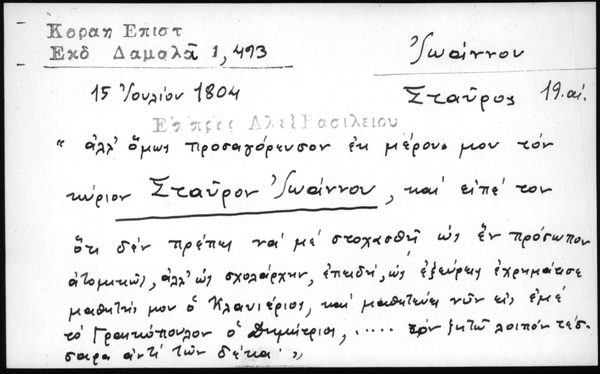 Κοραη Επιστ
Εκδ Δαμαλᾶ 1, 493
Ἰωάννου
15 Ἰουλίου 1804
Σταῦρος 19. αἰ.
Επ πρὸς Αλεξ Βασιλειου
" ἀλλ' ὅμως προσαγόρευσον ἐκ μέρους μου τὸν
κύριον Σταῦρον Ἰωάννου, καὶ εἰπέ τον
ὅτι δὲν πρέπει νὰ μὲ στοχασθῇ ὡς ἓν πρόσωπον
ἀτομικῶς, ἀλλ' ὡς σχολάρχην, ἐπειδή, ὡς ἐξεύρεις ἐχρημάτισε
μαθητής μου ὁ Κλανιέριος, καὶ μαθητεύει νῦν εἰς ἐμὲ
τὸ Γραικόπουλον ὁ Δημήτριος, ..... τὸν ζητῶ λοιπὸν τέσ-
σαρα ἀντὶ τῶν δέκα "